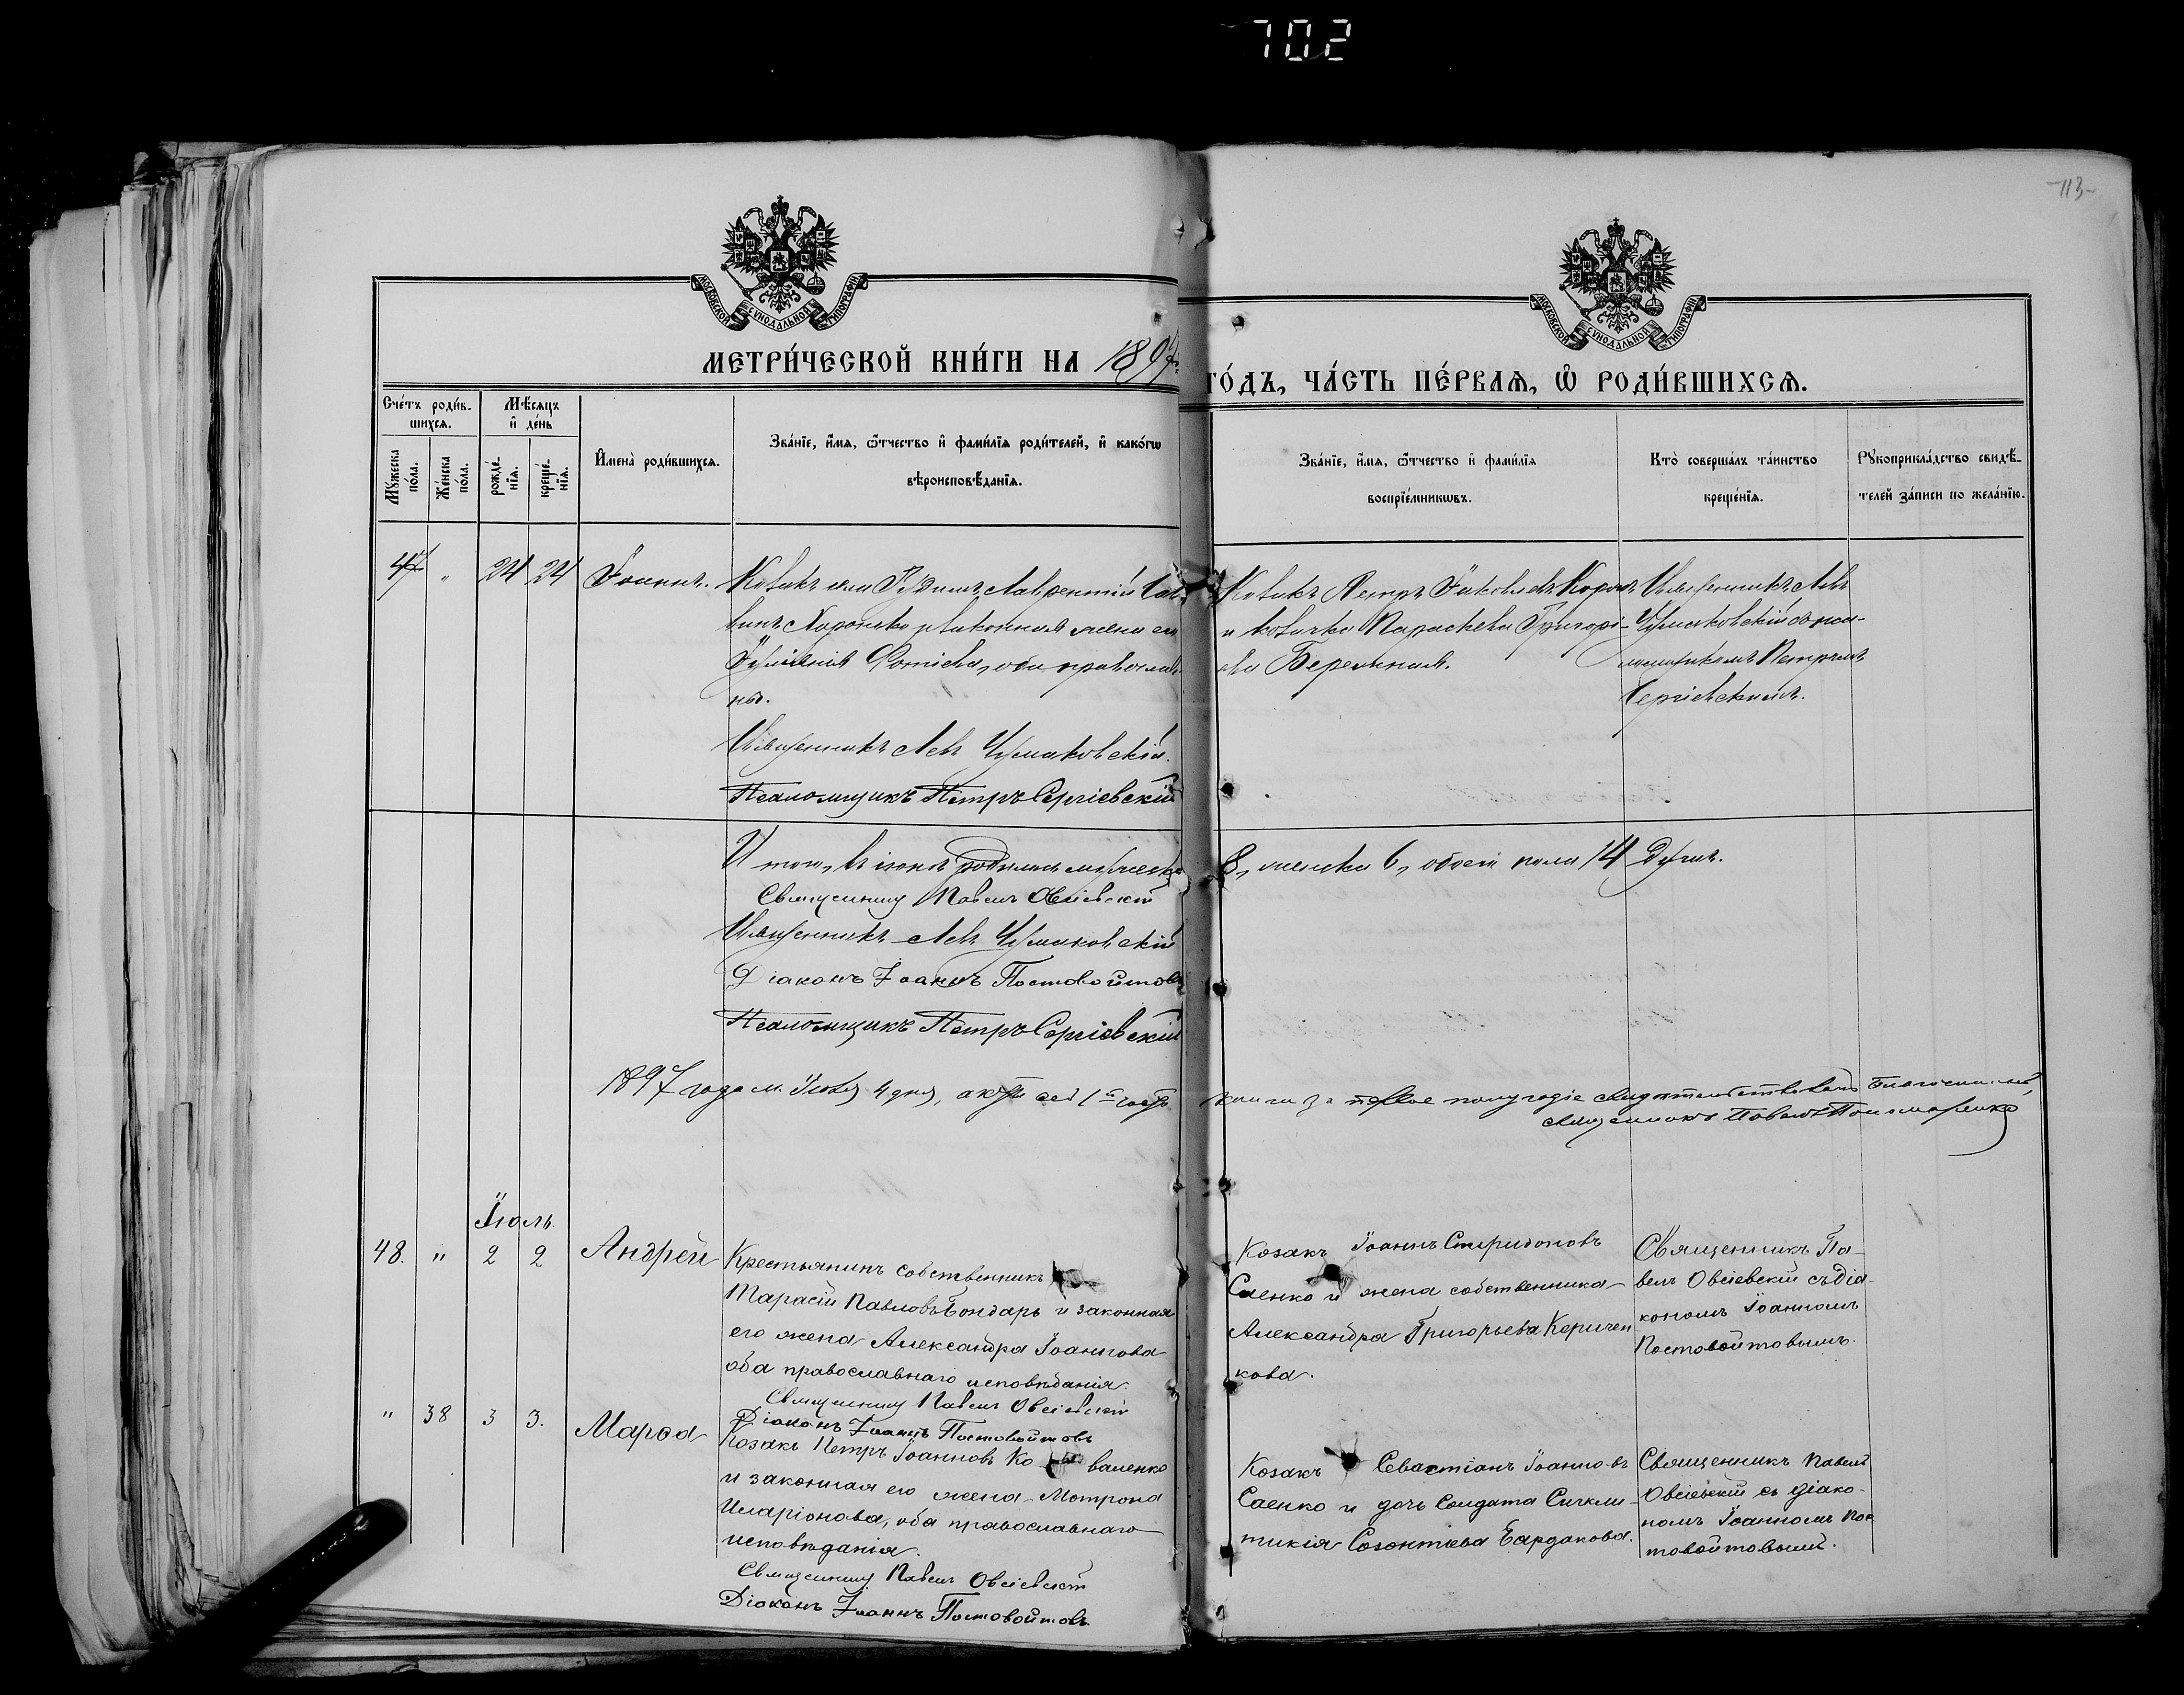 702
113
МОСКОВСКОЙ СѴНОДАЛЬНОЙ ТИПОГРАФІИ
МОСКОВСКОЙ СѴНОДАЛЬНОЙ ТИПОГРАФІИ
МЕТРИ́ЧЕСКОЙ КНИ́ГИ НА 1897
ГО́ДЪ, ЧА́СТЬ ПЕ́РВАѦ, Ѡ҆ РОДИ́ВШИХСѦ.
Сче́тъ роди́в-
шихсѧ.
Мꙋ́жеска по́ла.
Же́нска по́ла.
Мѣ́сѧцъ
и҆ де́нь
рожде́-
нїѧ.
креще́-
нїѧ.
И҆мена̀ роди́вшихсѧ.
Зва́нїе, и҆́мѧ, ѻ҆́тчество и҆ фами́лїѧ роди́телей, и҆ како́гѡ
вѣроисповѣ́данїѧ.
Зва́нїе, и҆́мѧ, ѻ҆́тчество и҆ фами́лїѧ
воспрїе́мникѡвъ.
Кто̀ соверша́лъ та́инство
креще́нїѧ.
Рꙋкоприкла́дство свидѣ́-
телей за́писи по жела́нїю.
47 " 24 24 Іоаннъ.
Лаврентій
законная жена его
Фотіева, оба православ-
ны.
Священникъ Левъ Чумаковскій.
Псаломщикъ Петръ Сергіевскій
Козакъ Петръ Іаковлевъ
и козачка Параскева Григорі-
ева
Священникъ Левъ
Чумаковскій съ пса-
ломщикомъ Петромъ
Сергіевскимъ.
Итого, въ іюнѣ родилось мужеска
8, женска 6, обоего пола 14 душъ.
Священникъ Павелъ Овсіевскій
Священникъ Левъ Чумаковскій
Діаконъ Іоаннъ Постовойтовъ
Псаломщикъ Петръ Сергіевскій
1897 года м. Іюля 4 дня, сей 1й
книги за первое полугодіе свидѣтельствовалъ Благочинный,
священникъ Павелъ Пономаренко
Іюль.
48. " 2 2 Андрей
Крестьянинъ собственникъ
Тарасій Павловъ Бондарь и законная
его жена Александра Іоаннова
оба православнаго исповѣданія.
Священникъ Павелъ Овсіевскій
Діаконъ Іоаннъ Постовойтовъ
Козакъ Іоаннъ Спиридоновъ
Саенко и жена собственника
Александра Григорьева Киричен
кова.
Священникъ Па-
велъ Овсіевскій съ діа-
кономъ Іоанномъ
Постовойтовымъ.
" 38 3 3. Марѳа
Козакъ Петръ Іоанновъ Коваленко
и законная его жена Мотрона
Иларіонова, оба православнаго
исповѣданія.
Священникъ Павелъ Овсіевскій
Діаконъ Іоаннъ Постовойтовъ.
Козакъ Севастіанъ Іоанновъ
Саенко и дочь солдата Синкли-
тикія Созонтіева Бардакова.
Священникъ Павелъ
Овсіевскій съ діако-
номъ Іоанномъ Пос
товойтовымъ.